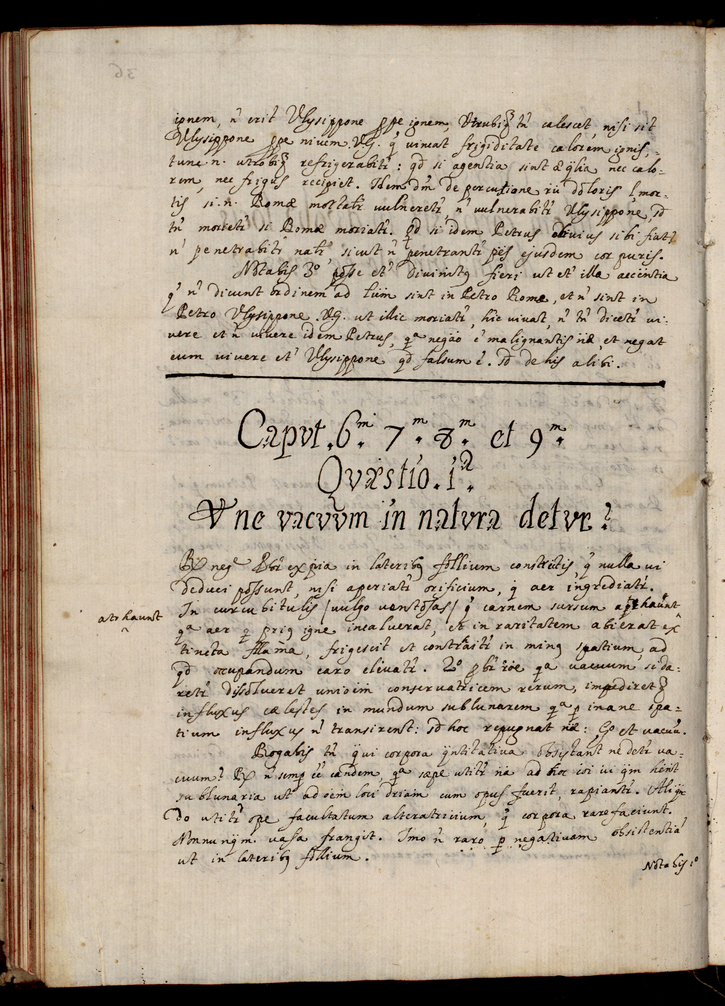 ignem, n̄ erit Ulysippone prope ignem, Utrubiq; tn̄ calescet, nisi sit
Ulysippone prope nivem V.G. q̄ vincat frigiditate calorem ignis,
tunc n. utrobiq; refrigerabitr̄: qd si agentia sint æq̄lia nec calo-
rem, nec frigus recipiet. Idem dm̄ de percusione rū doloris, l mor-
tis si.n. Romæ mortalr̄ vulneretr̄ n̄ vulnerabitr̄ Ulysippone, sd
tn̄ moretr̄ si Romæ moriatr̄. qd si idem Petrus obvius sibi fiat
n̄ penetrabitr̄ natr̄, sicut n̄ penetrantr̄ ptes ejusdem corporis.
Notabis 3º posse et̄ divinitus fieri ut et̄ illa accentia
q̄ n̄ dicunt ordinem ad lūm sint in Petro Romæ, et n̄ sint in
Petro Ulysippone V.G. ut illic moriatr̄, hic vivat, n̄ tn̄ dicetr̄ vi-
vere et n̄ vivere idem Petrus, qa negao ē malignantis næ, et negat
eum vivere et̄ Ulysippone qd falsum ē. Sd de his alibi.
Capvt. 6m. 7m. 8m. et 9m.
Qvæstio. 1a.
Vne vacvvm in natvra detvr?
Rx neg. Pbr̄ ex pia in lateribq follium constrictis, q̄ nulla vi
deduci possunt, nisi aperiatr̄ orificium, q̄ aer ingrediatr̄.
In curcubitulis (vulgo ventosas) q̄ carnem sursum
atrhaunt
qa aer q̄ priq igne incalverat, et in raritatem abierat ex
tincta flāma, frigescit et contraitr̄ in minq spatium, ad
qd ocupandum caro elevatr̄. 2º pbr̄ rōe qa vacuum si da-
retr̄ dissolveret unioīm conservatricem rerum, impediretq;
influxus cælestes in mundum sublunarem qa p inane spa-
tium influxus n̄ transirent: sd hoc repugnat næ: Go et vacuū.
Rogabis tn̄ qvi corpora qntitativa obsistant ne detr̄ va-
cuum? Rx n̄ semp eē eandem, qa sæpe utitr̄ na ad hoc coi vi qm hēnt
sublunaria ut ad oem loci driam cum opus fuerit, rapiantr̄. Aliqn̄
do utitr̄ ope facultatum alteratricium, q̄ corpora rarefaciunt.
Nonnunqm. vasa frangit. Imo n̄ raro p negativam obsistentiā
ut in lateribq follium.
Notabis 1º